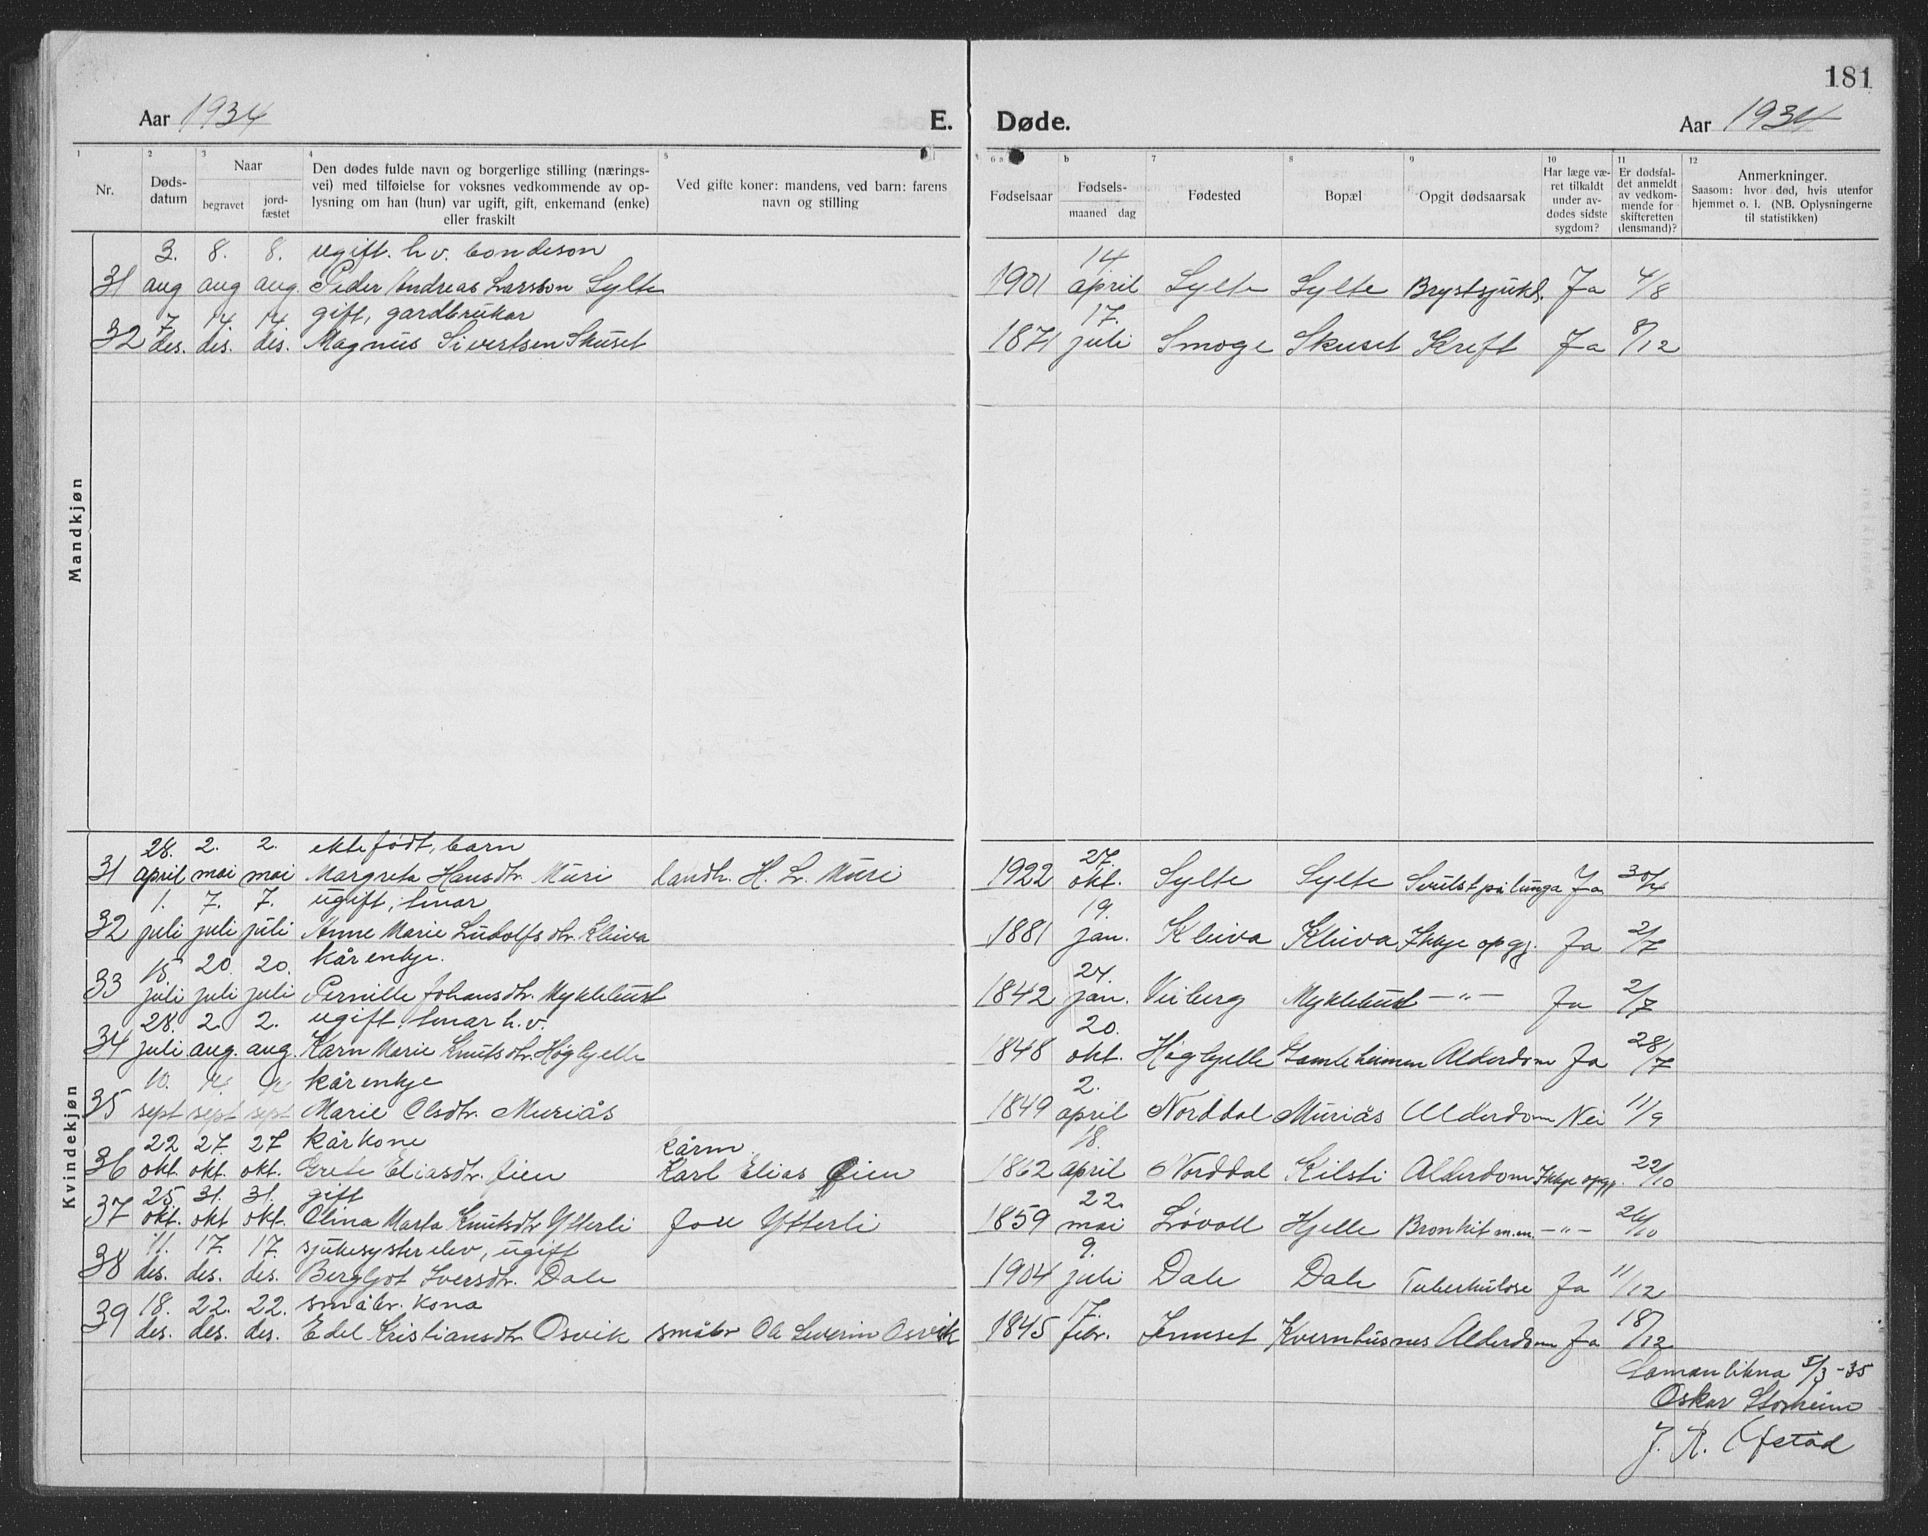 181
Aar 1934 E. Døde. Aar 1934
1 2 3 4 5 6 a b 7 8 9 10 11 12
Nr.
Døds-
datum
Naar
begravet
jord-
fæstet
Den dødes fulde navn og borgerlige stilling (nærings-
vei) med tilføielse for voksnes vedkommende av op-
lysning om han (hun) var ugift, gift, enkemand (enke)
eller fraskilt
Ved gifte koner: mandens, ved barn: farens
navn og stilling
Fødselsaar
Fødsels-
maaned dag
Fødested
Bopæl
Opgit dødsaarsak
Har læge væ-
ret tilkaldt
under av-
dødes sidste
sygdom?
Er dødsfal-
det anmeldt
av vedkom-
mende for
skifteretten
(lensmand)?
Anmerkninger.
Saasom: hvor død, hvis utenfor
hjemmet o. l. (NB. Oplysningerne
til statistikken)
Mandkjøn
3. 8. 8. ugift. h.v. bondeson 14.
31 aug aug aug. Peder Andreas Larsson Sylte 1901 april Sylte Sylte Brystsjukd. Ja 4/8
7. 14. 14. gift, gardbrukar 17.
32 des. des. des. Magnus Sivertsen Skuset 1871 juli Smoge Skuset Kreft Ja 8/12
Kvindekjøn
28. 2. 2. ektefødt, barn 27.
31 april mai mai Margreta Hansdtr. Muri landh. H. L. Muri 1922 okt. Sylte Sylte Svulst på lunga Ja 30/4
1. 7. 7. ugift, 19.
32 juli juli juli Anne Marie Ludolfsdtr. Kleiva 1881 jan. Kleiva Kleiva Ikkje opgj. Ja 2/7
15 20. 20. kårenkje. 24.
33 juli juli juli Pernille Johansdtr. Myklebust 1842 jan. Veiberg Myklebust —"— Ja 2/7
28. 2. 2. ugift. h.v. 20.
34 juli aug. aug. Karn Marie Knutsdtr. Høghjelle 1848 okt. Høghjelle Gamleheimen Alderdom Ja 28/7
10. 14 14 kårenkje 2.
35 sept sept sept Marie Olsdtr. Muriås 1849 april Norddal Muriås Alderdom Nei 11/9
22 27. 27 kårkone kårm. 18.
36 okt. okt. okt. Grete Eliasdtr. Øien Karl Elias Øien 1862 april Norddal Kilsti Alderdom Ikkje opgj. 22/10
25 31. 31. gift 22.
37 okt. okt okt. Olina Marta Knutsdtr. Ytterli Jon Ytterli 1859 mai Løvoll Hjelle Bronkit m.m. —"— 26/10
11. 17. 17. sjukesysterelev, ugift 9.
38 des. des. des. Bergljot Iversdtr. Dale 1904 juli Dale Dale Tuberkulose Ja 11/12
18. 22. 22. småbr. kona 17.
39 des. des. des. Edel Kristiansdtr. Osvik småbr Ole Severin Osvik 1845 febr. Linset Kvernhusnes Alderdom Ja 18/12
Samanlikna 5/3-35
Oskar Storheim
J. R. Ofstad